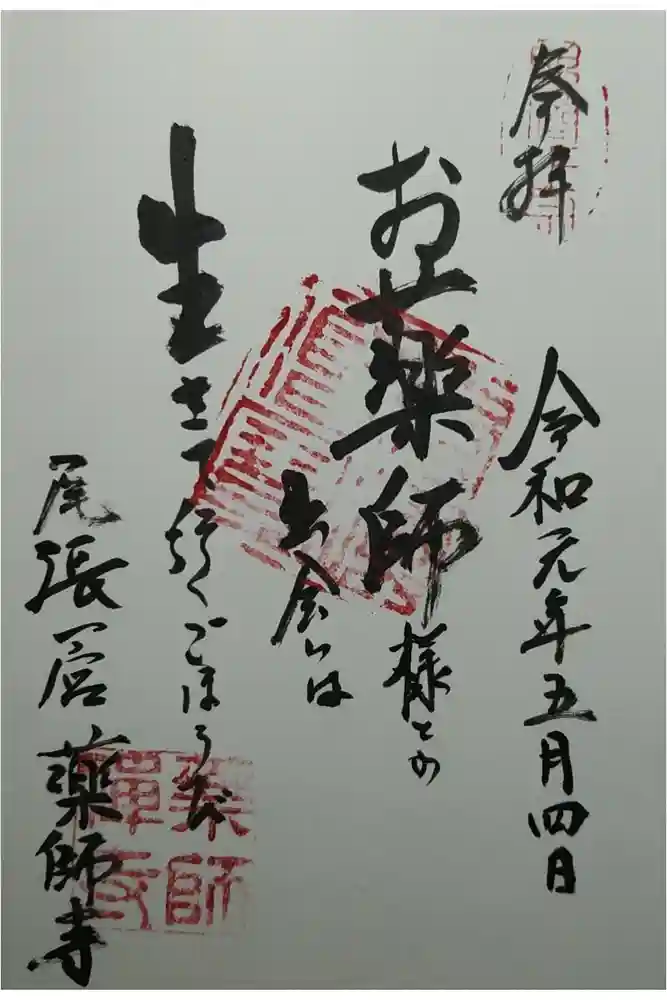 奉拝
令和元年五月四日
お薬師様との
出会いは
生きて行くごほうび
尾張一宮 薬師寺
薬師
禪寺